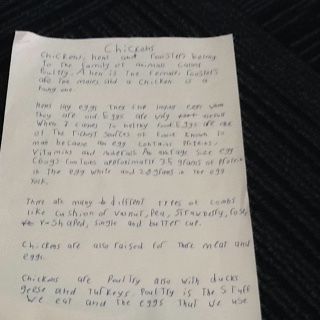 Chickens
Chickens, hens and roosters belong
to the family of animals called
Poultry. A hen is the female, roosters
are the males and a chicken is a
young one.
Hens lay eggs they live inside even when
they are old Eggs are very
When it comes to healthy food Eggs are one
of the richest sources of food known to
man because an egg contains proteins,
vitamins and minerals An average size egg
(60g) contains approximately 3.5 grams of protein
in the egg white and 2.0 grams in the egg
yolk.
There are many different types of combs
like cushion of walnut, Pea, Strawberry, rose,
V-shaped, single and butter cup.
Chickens are also raised for their meat and
eggs.
Chickens are Poultry also with ducks
geese and turkeys. Poultry is the stuff
we eat and the eggs that we use